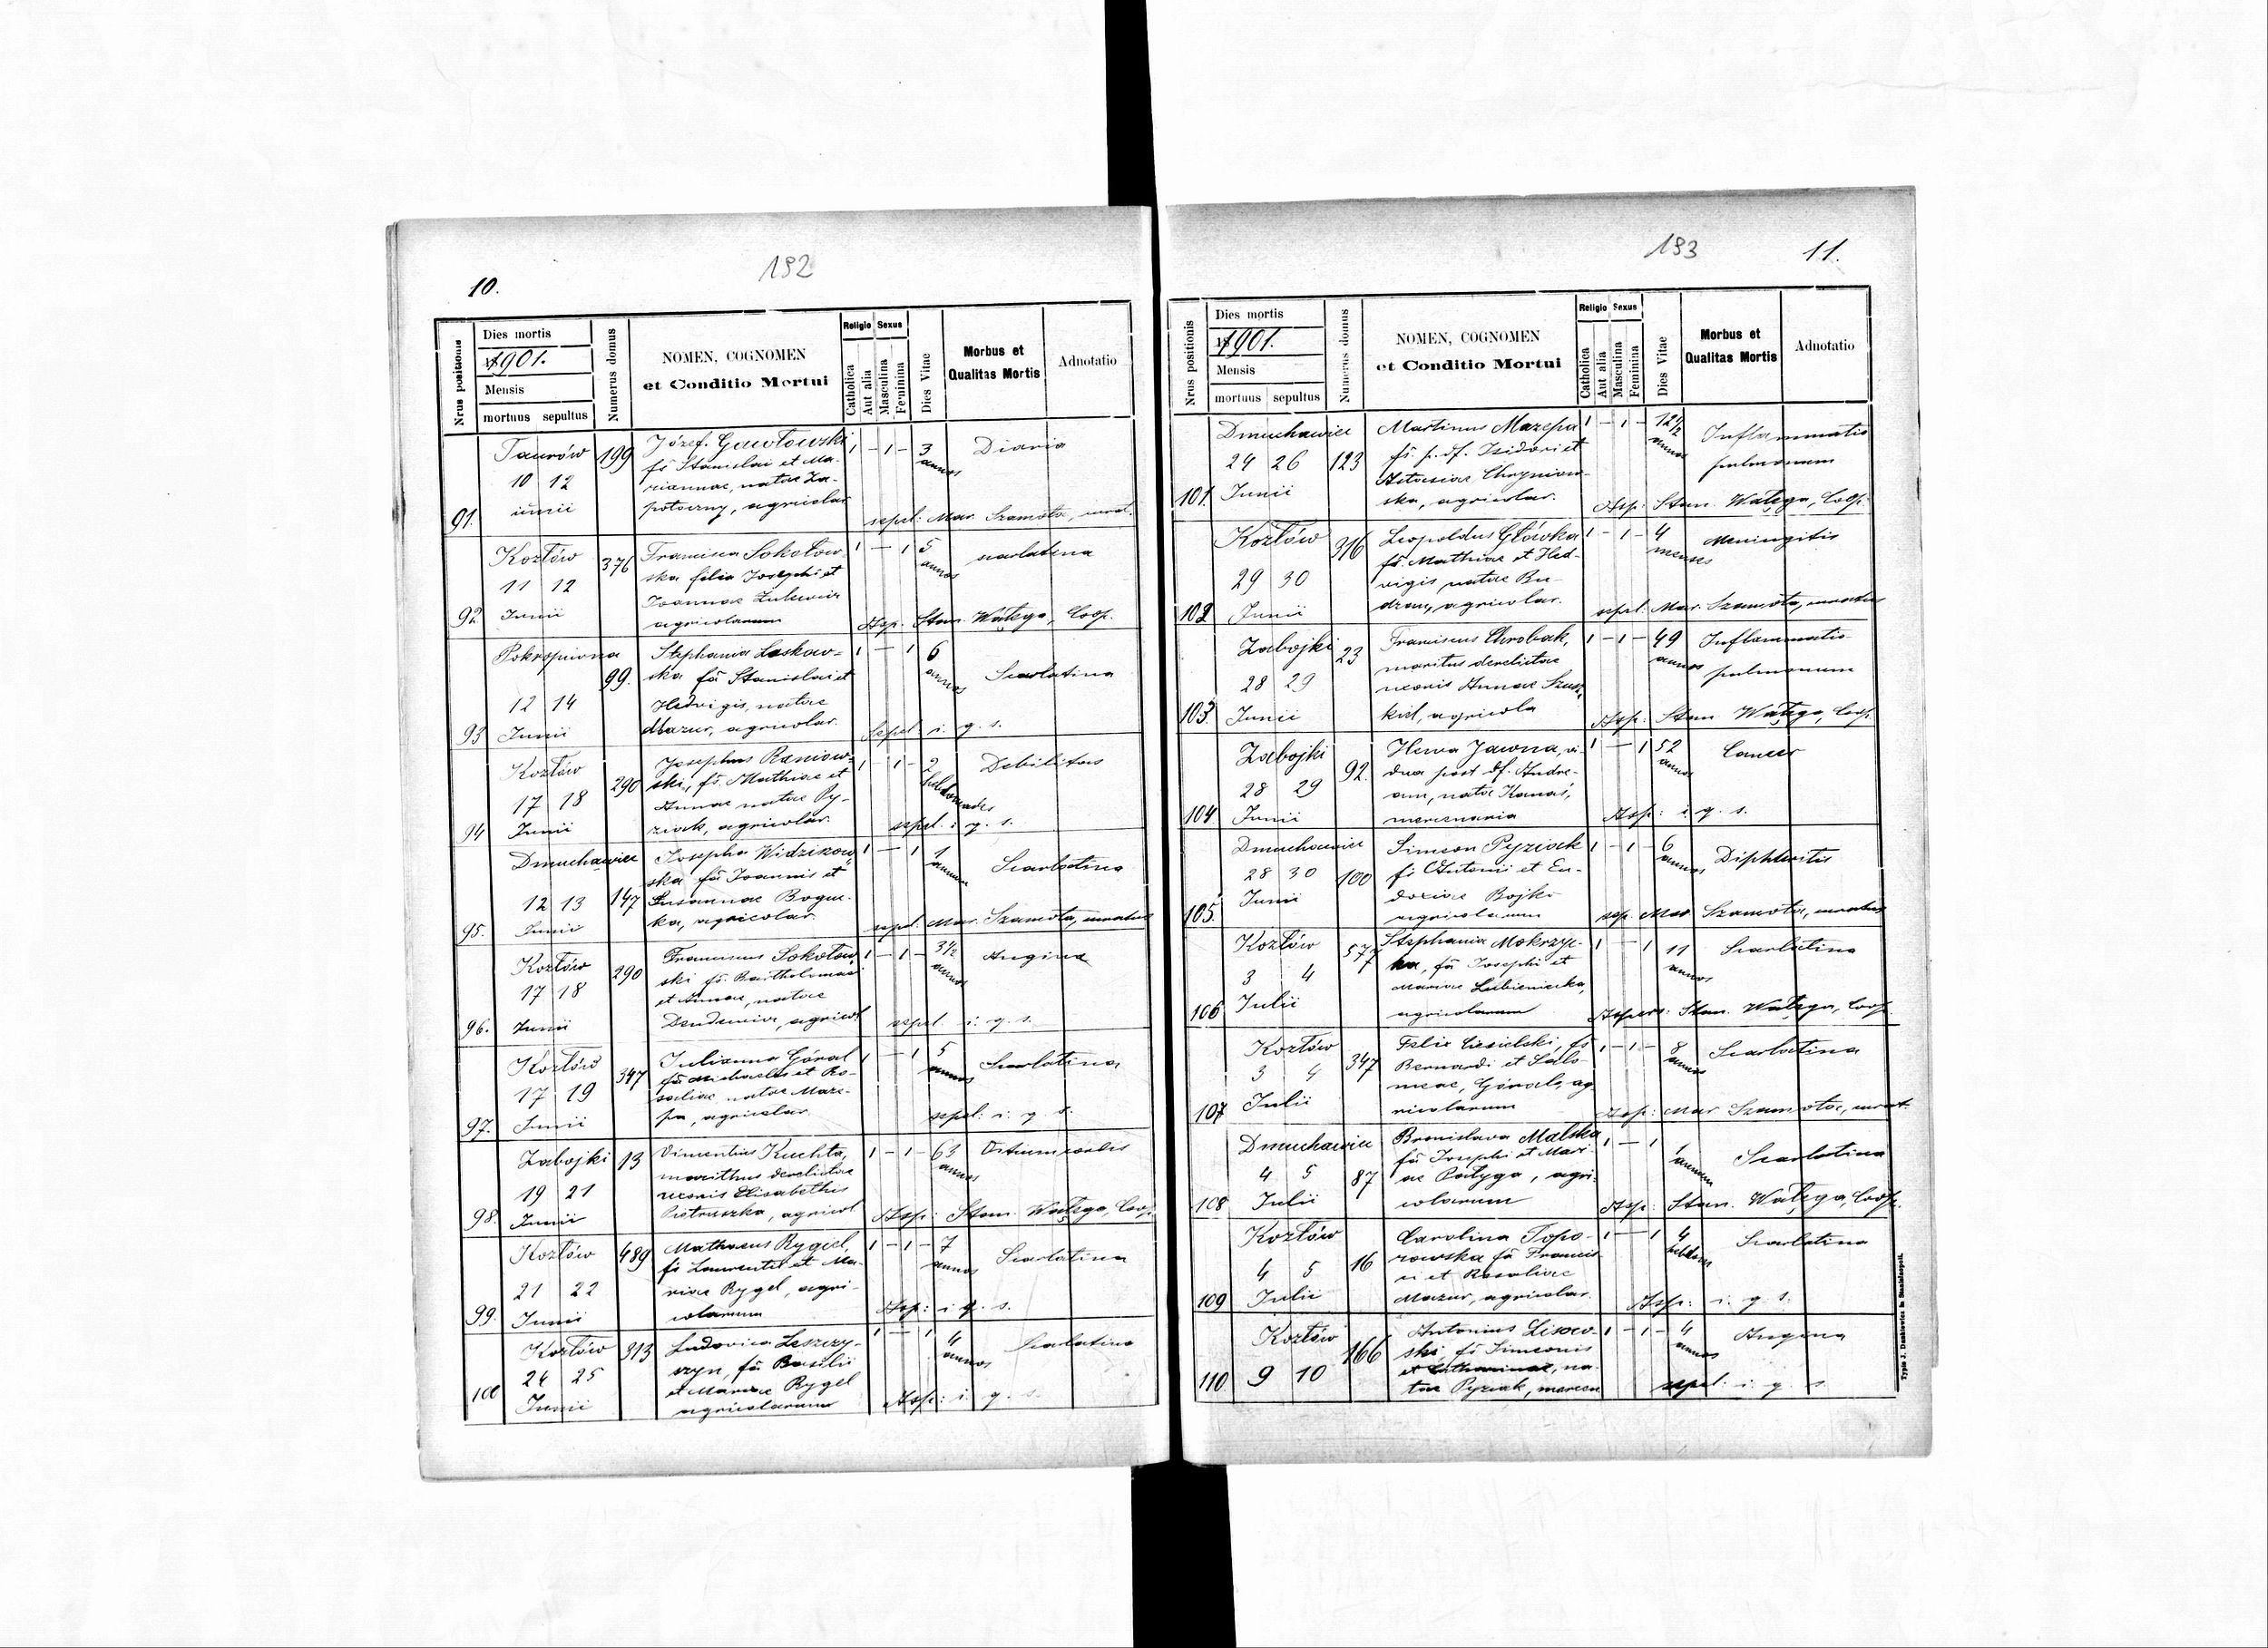 10.
192
Nrus positionis
Dies mortis
1901.
Mensis
mortuus sepultus
Numerus domus
NOMEN, COGNOMEN
et Conditio Mortui
Religio Sexus
Catholica
Aut alia
Masculina
Feminina
Dies Vitae
Morbus et
Qualitas Mortis
Adnotatio
91.
Taurów 199
10 12
iunii
Józef Gawłowski
fs Stanislai et Ma-
riannae, natae Za-
potoczny, agricolar
1 - 1 - 3 annos
Diaria
sepel: Mar. Szamota, curat.
92.
Kozłów 376
11 12
Junii
Francisca Sokołow-
ska filia Josephi et
Joannae Zulewicz
agricolarum
1 - 1 5 annos
scarlatina
Asp. Stan. Wałęga, Coop.
93
Pokropiwna
99.
12 14
Junii
Stephania Laskow-
ska fa Stanislai et
Hedvigis, natae
Mazur, agricolar.
1 - 1 6 annos
Scarlatina
Sepel. i. q. s.
94
Kozłów 290
17 18
Junii
Josephus Raniow-
ski, fs. Mathiae et
Annae natae Py-
ziak, agricolar.
1 - 1 - 2 hebdomades
Debilitas
sepel. i. q. s.
95.
Dmuchawiec
12 13 147
Junii
Josepha Widzikow
ska fa Joannis et
Susannae Boguc-
ka, agricolar.
1 - 1 1 annum
Scarlatina
sepel. Mar. Szamota, curatus
96.
Kozłów 290
17 18
Junii
Franciscus Sokołow
ski fs. Bartholomaei
et Annae, natae
agricol
1 - 1 - 3½ annos
Angina
sepel. i. q. s.
97.
Kozłów 347
17 19
Junii
Julianna Góral
fa Michaelis et Ro-
saliae, natae Maze-
pa, agricolar.
1 - 1 5 annos
Scarlatina
sepel: i. q. s.
98.
Zabojki 13
19 21
Junii
Vincentius Kuchta,
marithus derelictae
uxoris Elisabethus
Pietruszka, agricol.
1 - 1 - 63 annos
Asp: Stan. Wałęga, Coop.
99.
Kozłów 489
21 22
Junii
Mathaeus Rygiel,
fs Laurentii et Ma-
riae Rygel, agri-
colarum
1 - 1 - 7 annos
Scarlatina
Asp: i. q. s.
100
Kozłów 313
24 25
Junii
Ludovica Leszczy-
szyn, fa Basilii
et Mariae Rygel
agricolarum
1 - 1 4 annos
Scarlatina
Asp: i. q. s.
193
11.
Nrus positionis
Dies mortis
1901.
Mensis
mortuus sepultus
Numerus domus
NOMEN, COGNOMEN
et Conditio Mortui
Religio Sexus
Catholica
Aut alia
Masculina
Feminina
Dies Vitae
Morbus et
Qualitas Mortis
Adnotatio
101.
Dmuchawiec
24 26 123
Junii
Martinus Mazepa
fs p. df. Isidori et
ska, agricolar.
1 - 1 - 12½ annos
Inflammatio
pulmonum
Asp: Stan. Wałęga, Coop.
102
Kozłów 316
29 30
Junii
Leopoldus Główka
fs. Mathiae et Hed-
vigis natae Bu-
dzan, agricolar.
1 - 1 - 4 menses
Meningitis
sepel. Mar. Szamota, curatus
103.
Zabojki 23
28 29
Junii
Franciscus Chrobak,
maritus derelictae
uxoris Annae Szusz
kiel, agricola
1 - 1 - 49 annos
Inflammatio
pulmonum
Asp: Stan. Wałęga, Coop.
104
Zabojki 92.
28 29
Junii
Hewa Jawna, vi-
dua post df. Andre-
am, natae Kanas,
mercenaria
1 - 1 52 annos
Cancer
Asp: i. q. s.
105.
Dmuchawiec
28 30 100
Junii
Simeon Pyziak
fs Antonii et Eu-
doxiae Bojko
agricolarum
1 - 1 - 6 annos
Diphteritis
sep. Mar Szamota, curatus
106
Kozłów 577
3 4
Julii
Stephania Mokrzyc-
ka, fa Josephi et
Mariae Lubieniecka,
agricolarum
1 - 1 11 annos
Scarlatina
Aspers: Stan. Wałęga, Coop.
107
Kozłów 347
3 4
Julii
Felix Ciesielski, fs
Bernardi et Salo-
meae, Górals, ag-
ricolarum
1 - 1 - 8 annos
Scarlatina
Asp: Mar Szamota, curat.
108
Dmuchawiec
4 5 87
Julii
Bronislava Malska
fa Josephi et Mari
ae Patyga, agri-
colarum
1 - 1 1 annum
Scarlatina
Asp: Stan. Wałęga, Coop.
109
Kozłów 16
4 5
Julii
Carolina Topo-
rowska fa Francis
ci et Rosaliae
Mazur, agricolar.
1 - 1 4 hebdom
Scarlatina
Asp: i. q. s.
110
Kozłów 166
9 10
Antonius Lisow-
ski, fs Simeonis
et Catharinae, na-
tae Pyziak, mercen
1 - 1 - 4 annos
Angina
sepel: i. q. s.
Typis J. Dankiewicz in Stanislaopoli.